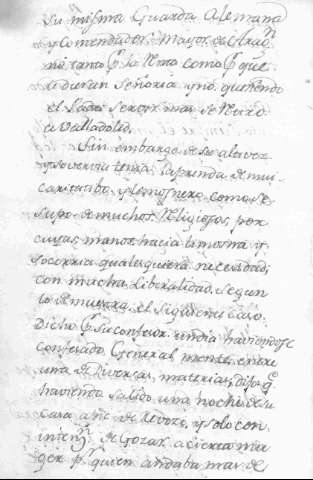 su misma Guarda Alemana
y Comendador Mayor de
tanto pr lo uno como pr que
le dieran Señoria y no queriendo
el
a Valladolid.
Sin embargo de su altivez
y sovervia tenia la prenda de mui
caritatibo, y lemosnero, como se
supo de muchos Religiosos, por
cuyas manos hacia limosna y
socorria qualesquiera necesidad,
con mucha Liberalidad. Segun
lo demuestra el siguiente caso.
Dicho pr su confesor un dia haviendose
confesado Generalmente, entre
una de diversas materias, dijo qe
haviendo salido una noche de su
casa de y solo con
intenn de Gozar a cierta mu
ger pr quien andaba mas de